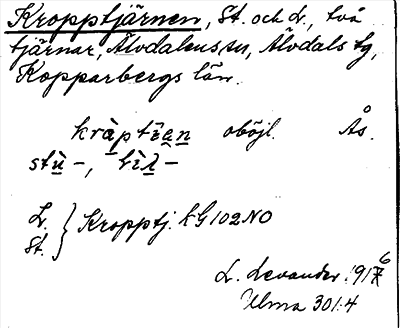 Kropptjärnen, St. och L., två
tjärnar, Älvdalens sn, Älvdals tg,
Kopparbergs län.
kràptīən oböjl. Ås.
stù -, lìl -
L.
St. } Kropptj. kG 102 NO
L. Levander 1916
Ulma 301:4